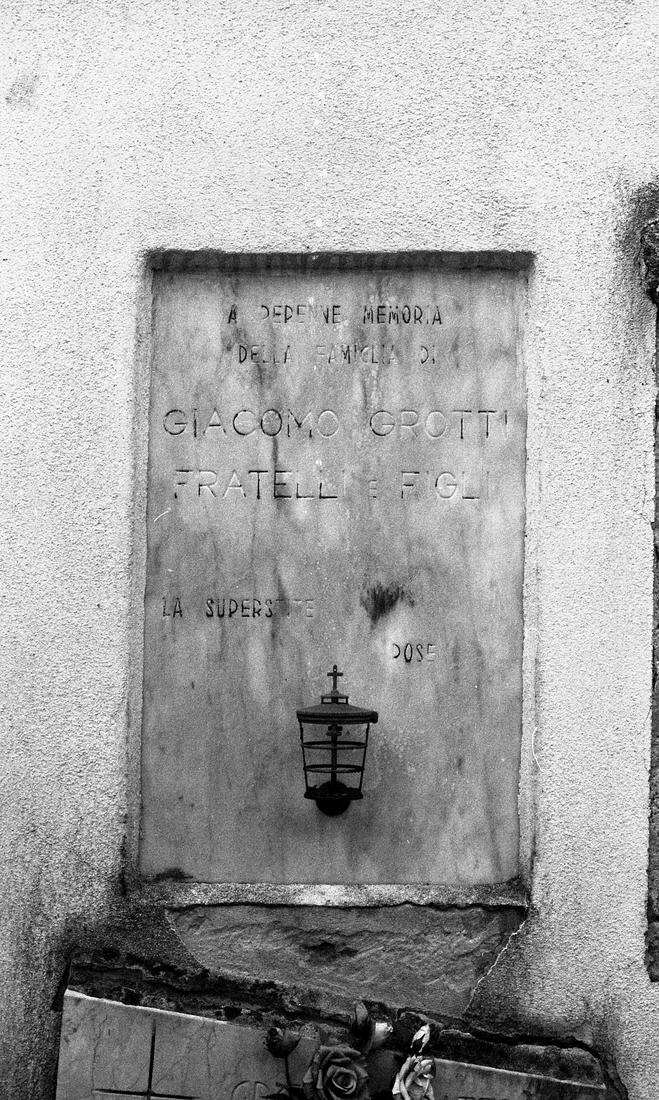 A PERENNE MEMORIA
DELLA FAMIGLIA DI
GIACOMO GROTTI
FRATELLI E FIGLI
LA SUPERSTITE
POSE